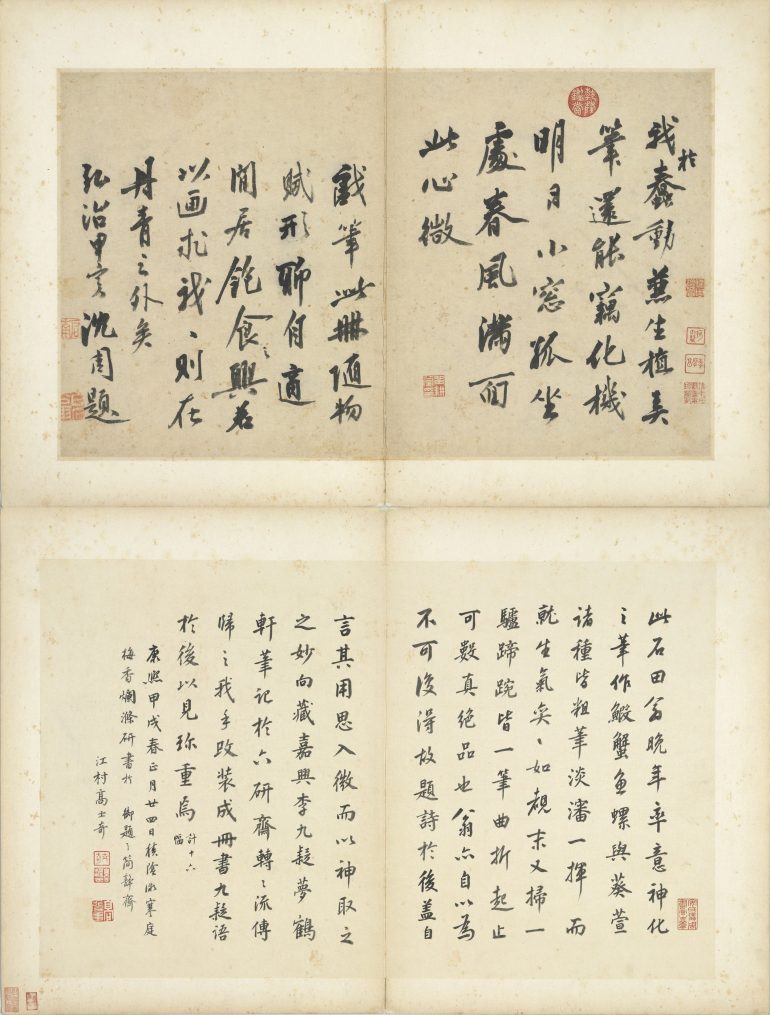 我於蠢動兼生植弄
筆還能竊化機
明月小窓孤坐
處春風滿面
此心微
戲筆此冊随物
賦形聊自適
閒居飽食之興若
以画求我〻則在
丹青之外矣
弘治甲寅沈周題
乾隆鑑賞
此石田翁晚年率意神化
之筆作鰕蟹魚螺與葵萱
諸種皆粗筆淡瀋一揮而
就生氣奕〻如覩末又掃一
驢蹄踠皆一筆曲折起止
可數真絕品也翁亦自以為
不可復得故題詩於後蓋自
言其用思入微而以神取之
之妙向藏嘉興李九疑夢鶴
軒筆記於六研齋轉〻流傳
歸之我手改装成冊書九疑語
於後以見珎重焉 計十六幅
康熙甲戌春正月廿四日積陰微寒庭
梅香爛滌研書於 御題〻簡靜齋
江村高士奇